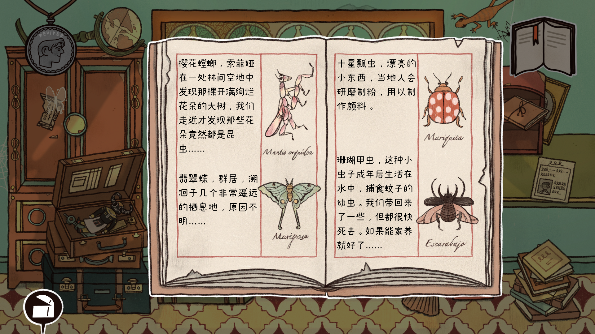 樱花螳螂，索菲娅
在一处林间空地中
发现那棵开满绚烂
花朵的大树，我们
走近才发现那些花
朵竟然都是昆
虫……
Mantis orquídea
翡翠蛾，群居，溯
洄于几个非常遥远
的栖息地，原因不
明……
Mariposa
十星瓢虫，漂亮的
小东西，当地人会
研磨制粉，用以制
作颜料。
Mariquita
珊瑚甲虫，这种小
虫子成年后生活在
水中，捕食蚊子的
幼虫。我们带回来
了一些，但都很快
死去。如果能家养
就好了……
Escarabajo